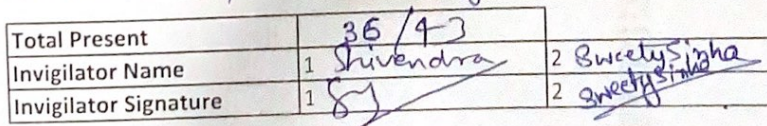 Total Present 36/43
Invigilator Name 1 Shivendra 2 Sweety Sinha
Invigilator Signature 1 2 Sweety Sinha